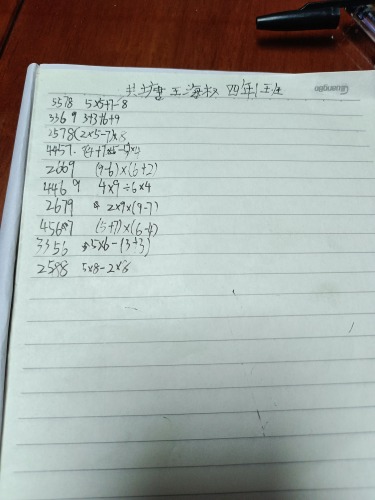 王海权 四年1班
Guangbo
5578 5×5+7-8
3369 3+3×6+9
2578(2×5-7)×8
4457.
2669 (9-6)×(6+2)
4469 4×9÷6×4
2679 2×9×(9-7)
4567 (5+7)×(6-4)
3356 5×6-(3+3)
2588 5×8-2×8